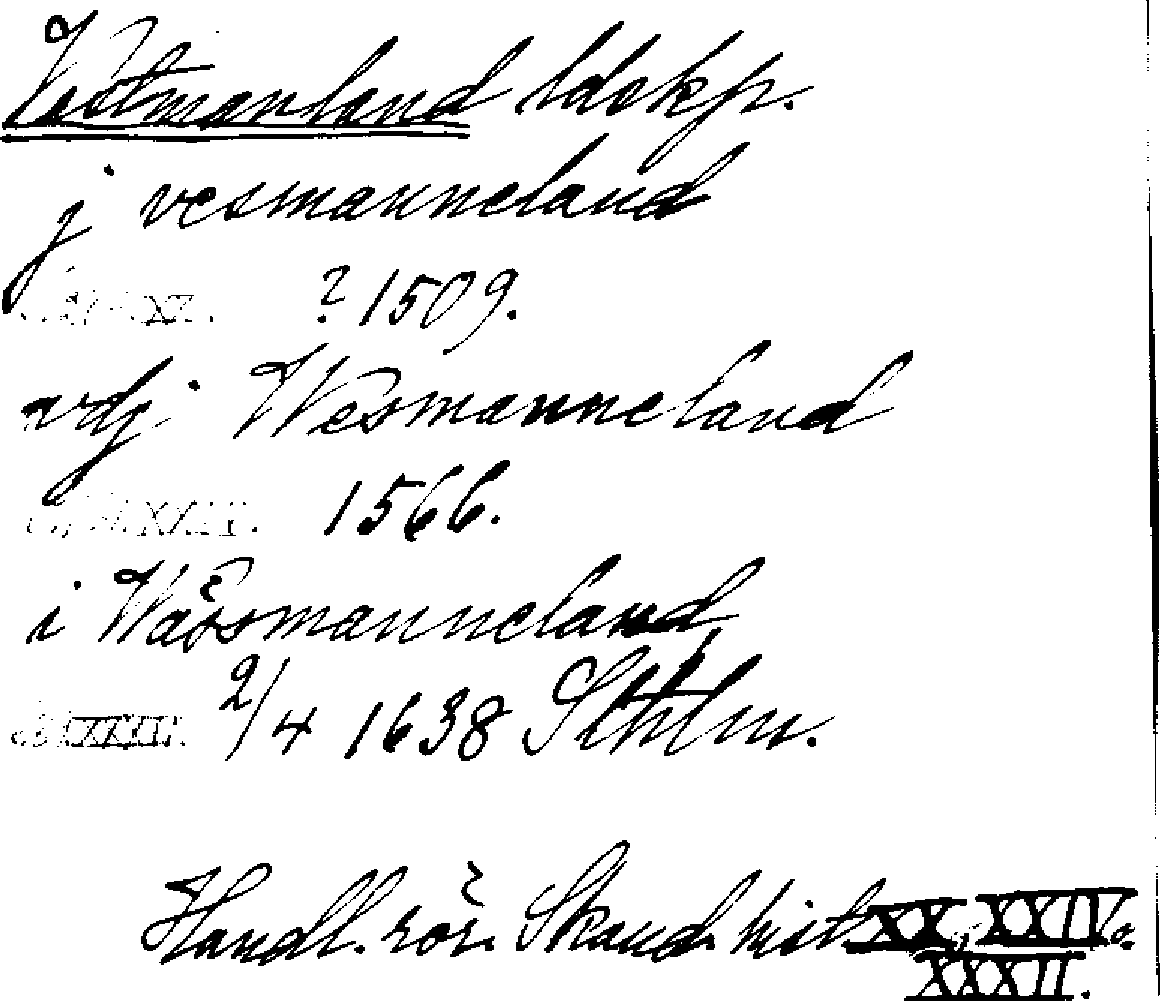 Västmanland ldskp.
j vesmanneland
? 1509.
vdj Wesmanneland
1566.
i Wässmanneland,
2/4 1638 Sthlm.
Handl. rör. Skand. hist XX, XXIV o.
XXXII.